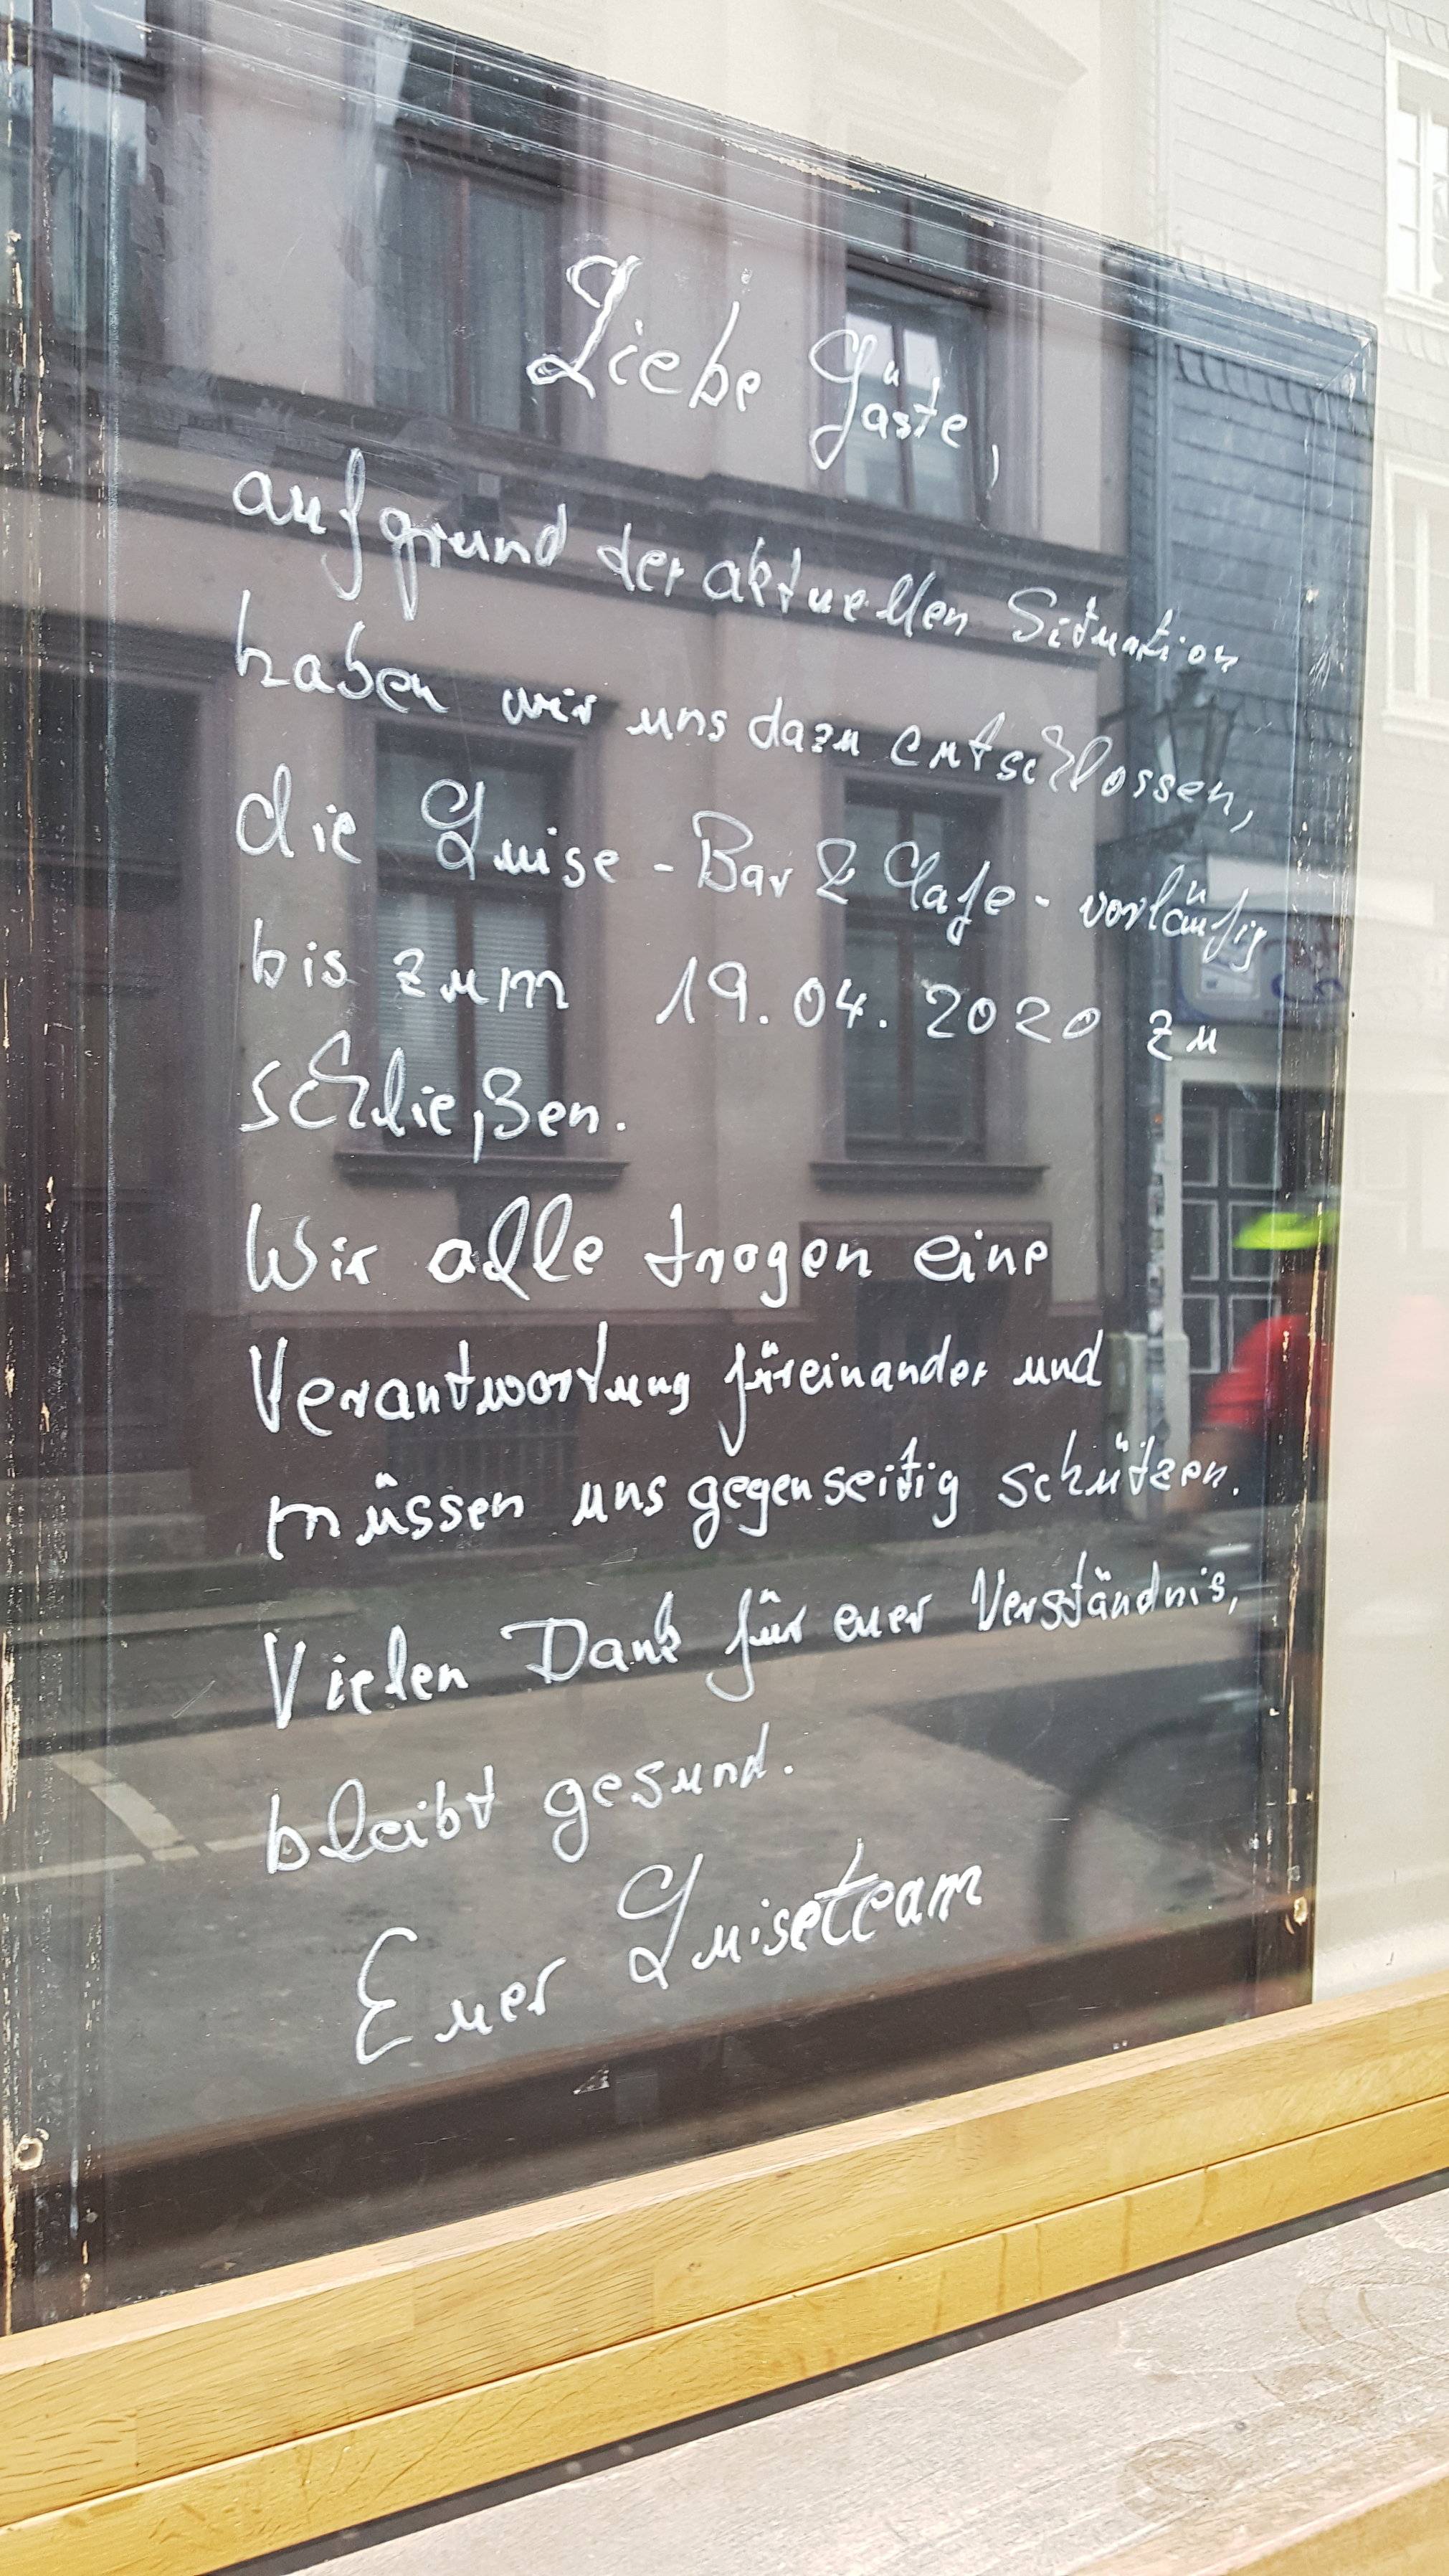 Liebe Gäste,
aufgrund der aktuellen Situation
haben wir uns dazu entschlossen,
die Luise - Bar & Cafe - vorläufig
bis zum 19.04.2020 zu
schließen.
Wir alle tragen eine
Verantwortung füreinander und
müssen uns gegenseitig schützen.
Vielen Dank für euer Verständnis,
bleibt gesund.
Euer Luiseteam